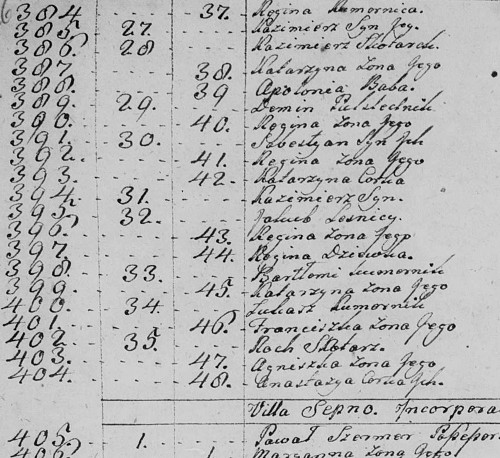 384 37. Regina Kumornica.
385 27. Kazimierz Syn Jey.
386. 28 Kazimierz Skotarek.
387 38. Katarzyna Zona Jego
388. 39 Apolonia Baba.
389. 29. Demin
390. 40. Regina Zona Jego
391. 30. Sebestyan Syn Jch
392. 41. Regina Zona Jego
393. 42. Katarzyna Corka
394 31. Kazimierz Syn.
395 32. Jakub Lesniccy.
396. 43. Regina Zona Jego
397. 44. Regina Dziewka.
398. 33. Bartłomi Kumornik
399. 45. Katarzyna Zona Jego
400. 34. Łukasz Kumornik
401. 46. Franciszka Zona Jego
402 35. Roch Skotarz.
403. 47. Agniszka Zona Jego
404. 48. Anastazya Corka Jch.
Villa Sepno. Incorpora
405. 1. Paweł Szermer
Maryanna Zona Jego